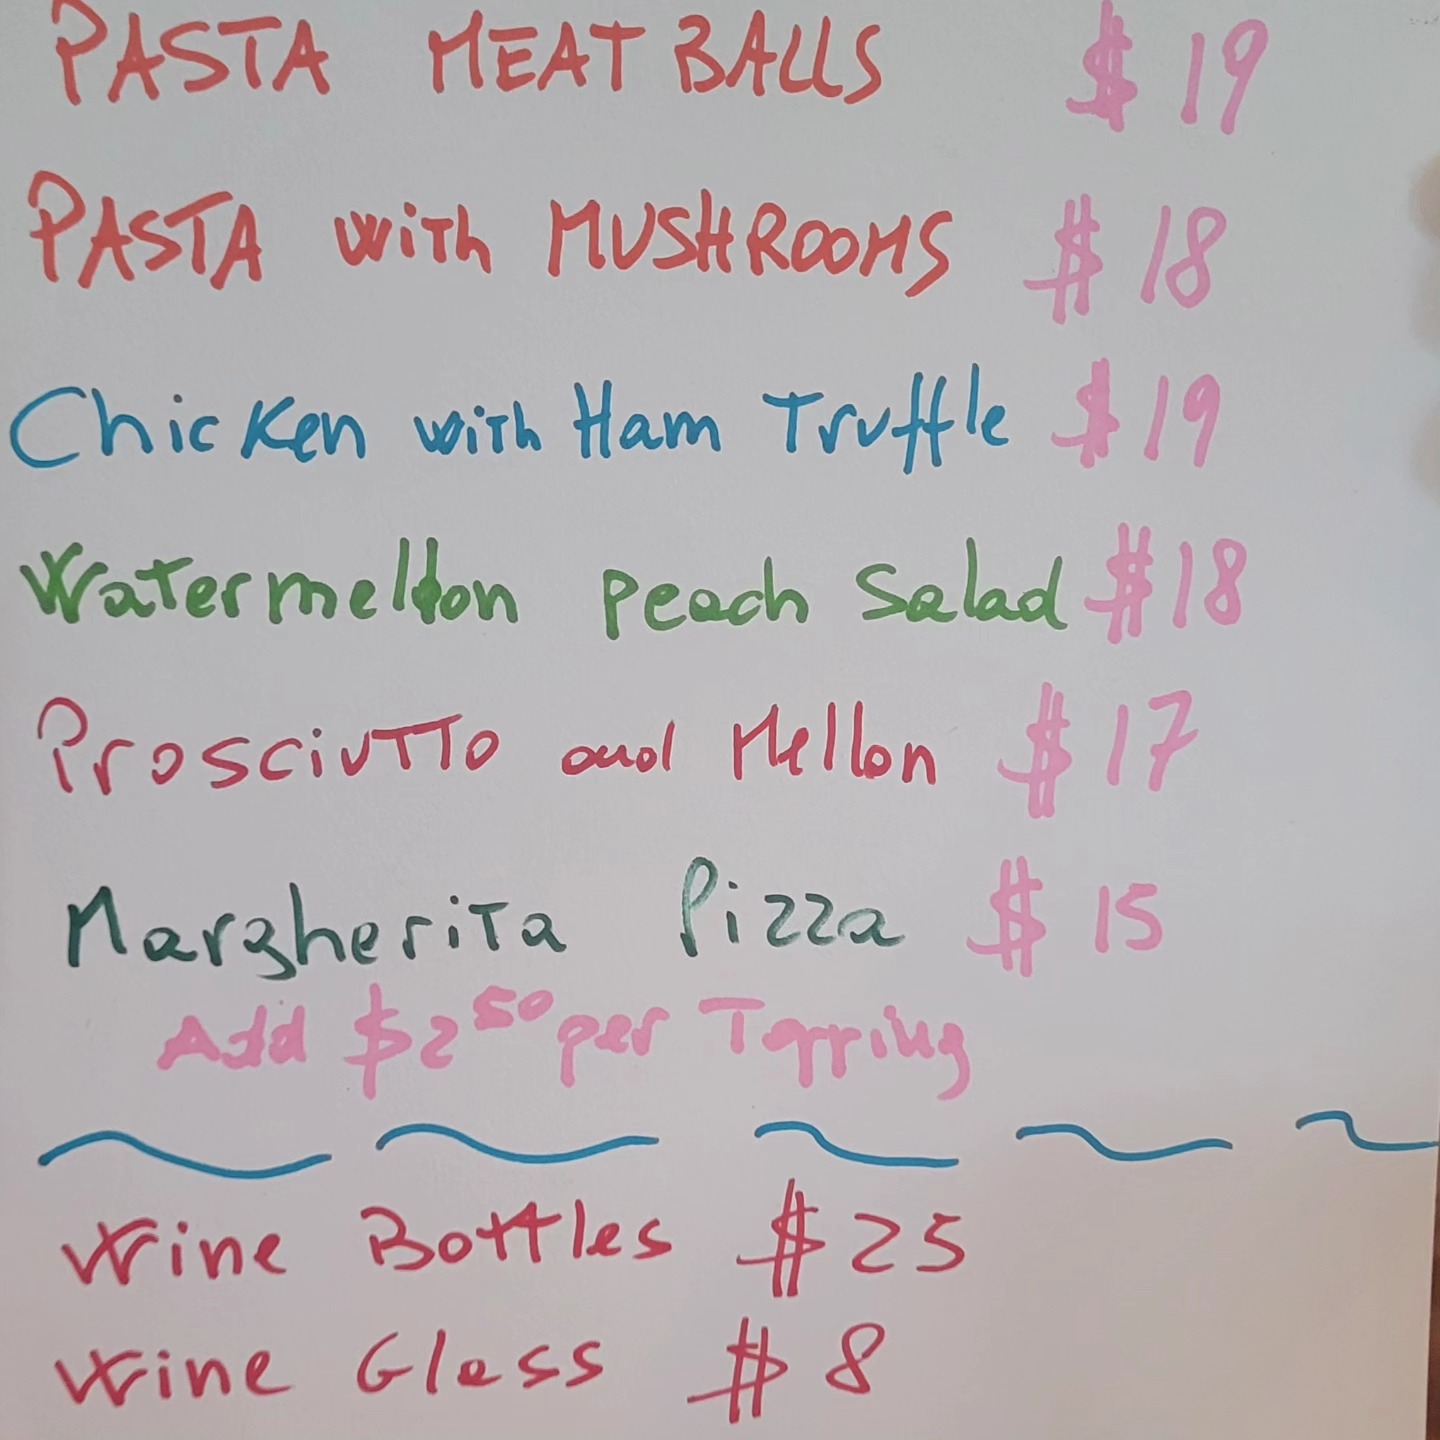 PASTA MEAT BALLS $ 19
PASTA with MUSHROOMS $ 18
Chicken with Ham Truffle $ 19
Watermellon peach Salad $ 18
Prosciutto and Mellon $ 17
Margherita Pizza $ 15
Add $2 50 per Topping
Wine Bottles $ 25
Wine Glass $ 8